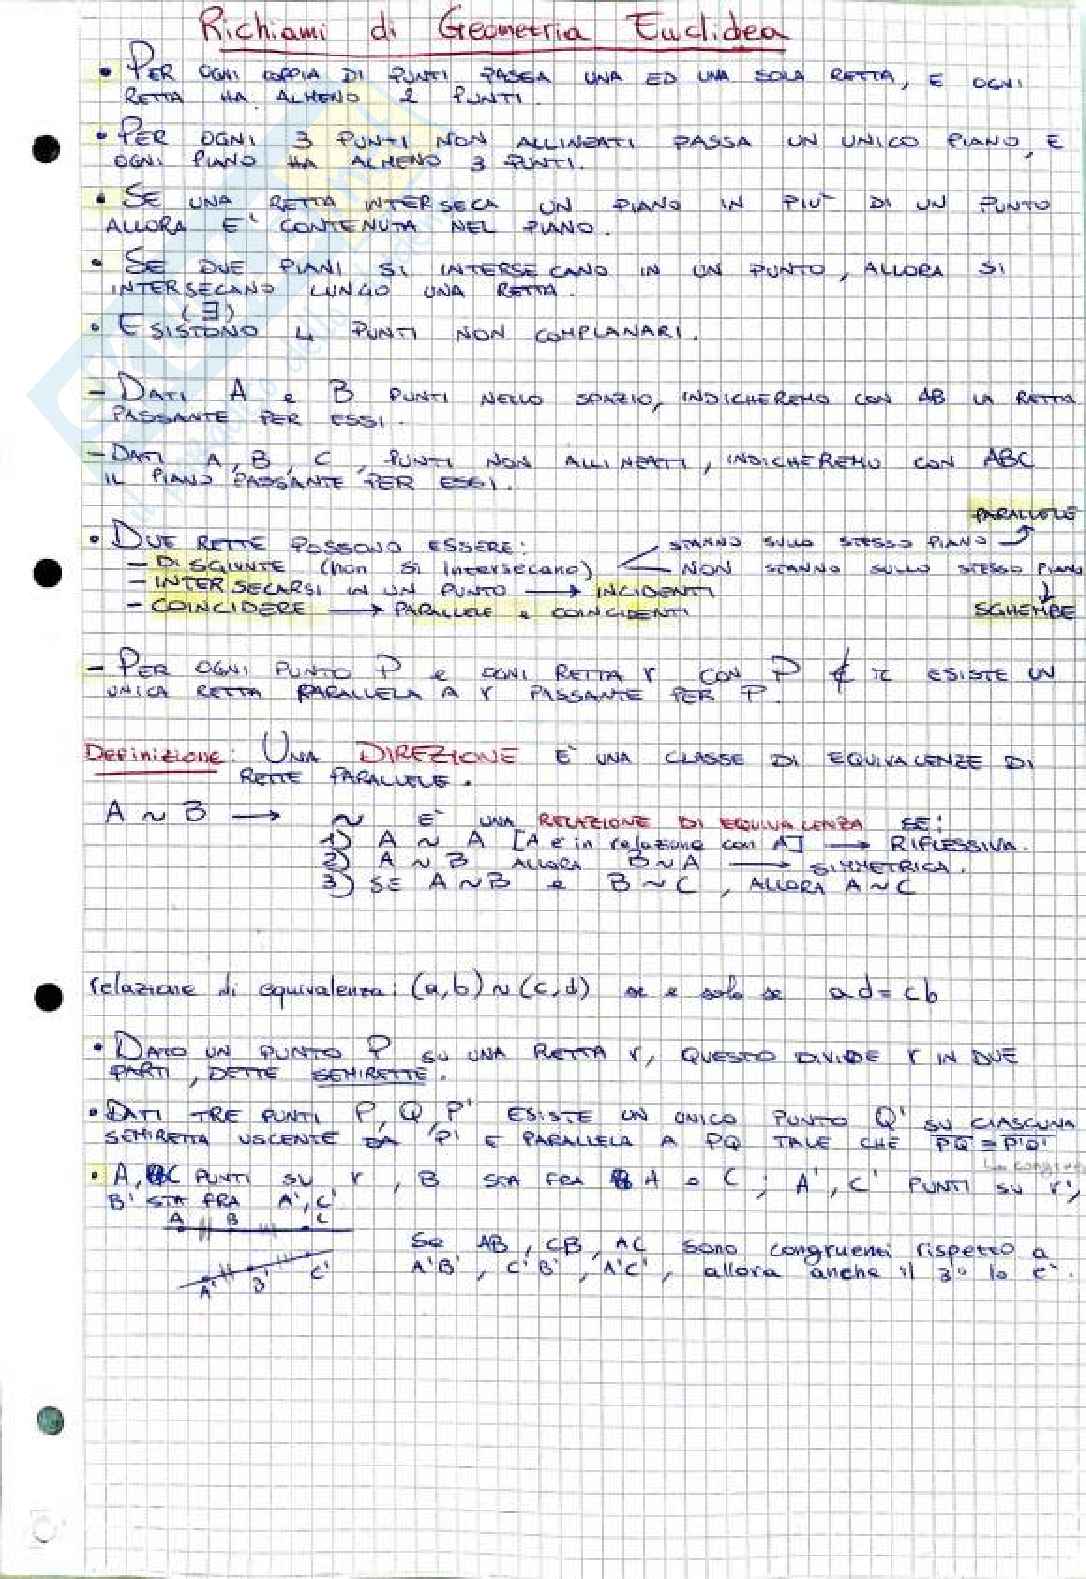 Richiami di Geometria Euclidea
• PER OGNI COPPIA DI PUNTI PASSA UNA ED UNA SOLA RETTA, E OGNI
RETTA HA ALMENO 2 PUNTI.
• PER OGNI 3 PUNTI NON ALLINEATI PASSA UN UNICO PIANO, E
OGNI PIANO HA ALMENO 3 PUNTI.
• SE UNA RETTA INTERSECA UN PIANO IN PIU' DI UN PUNTO
ALLORA E' CONTENUTA NEL PIANO.
• SE DUE PIANI SI INTERSECANO IN UN PUNTO, ALLORA SI
INTERSECANO LUNGO UNA RETTA.
(∃)
• ESISTONO 4 PUNTI NON COMPLANARI.
- DATI A e B PUNTI NELLO SPAZIO, INDICHEREMO CON AB LA RETTA
PASSANTE PER ESSI.
- DATI A, B, C, PUNTI NON ALLINEATI, INDICHEREMO CON ABC
IL PIANO PASSANTE PER ESSI.
PARALLELE
• DUE RETTE POSSONO ESSERE: STANNO SULLO STESSO PIANO
- DISGIUNTE (non si intersecano) NON STANNO SULLO STESSO PIANO
- INTERSECARSI IN UN PUNTO → INCIDENTI
- COINCIDERE → PARALLELE e COINCIDENTI SGHEMBE
- PER OGNI PUNTO P e OGNI RETTA r CON P ∉ r ESISTE UN
UNICA RETTA PARALLELA A r PASSANTE PER P.
Definizione: UNA DIREZIONE E' UNA CLASSE DI EQUIVALENZE DI
RETTE PARALLELE.
A ~ B → ~ E' UNA RELAZIONE DI EQUIVALENZA SE:
1) A ~ A [A è in relazione con A] → RIFLESSIVA.
2) A ~ B ALLORA B ~ A → SIMMETRICA.
3) SE A ~ B e B ~ C, ALLORA A ~ C
relazione di equivalenza: (a,b) ~ (c,d) se e solo se ad = cb
• DATO UN PUNTO P SU UNA RETTA r, QUESTO DIVIDE r IN DUE
PARTI, DETTE SEMIRETTE.
• DATI TRE PUNTI P, Q, P' ESISTE UN UNICO PUNTO Q' SU CIASCUNA
SEMIRETTA USCENTE DA P' E PARALLELA A PQ TALE CHE PQ ≅ P'Q'
• A, C PUNTI SU r, B STA FRA A e C; A', C' PUNTI SU r',
B' STA FRA A', C'
A B C
Se AB, CB, AC sono congruenti rispetto a
A'B', C'B', A'C', allora anche il 3° lo è.
A' B' C'